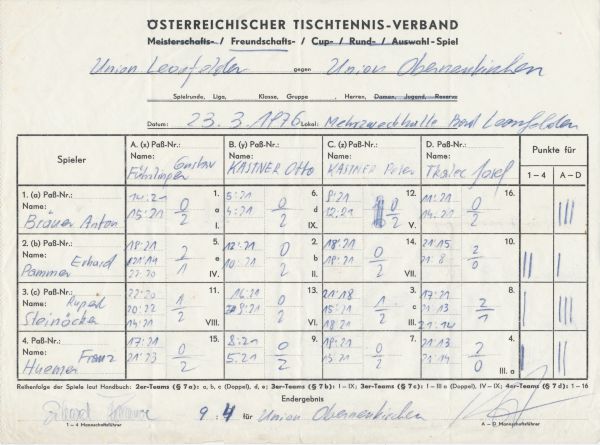 ÖSTERREICHISCHER TISCHTENNIS-VERBAND
Meisterschafts- / Freundschafts- / Cup- / Rund- / Auswahl-Spiel
Union Leonfelden gegen Union Oberneukirchen
Spielrunde, Liga, Klasse, Gruppe Herren, Damen, Jugend, Reserve
Datum: 23.3.1976 Lokal: Mehrzweckhalle Bad Leonfelden
Spieler A. (x) Paß-Nr.: B. (y) Paß-Nr.: C. (z) Paß-Nr.: D. Paß-Nr.: Punkte für
Name: Gustav Name: Name: Name: 1-4 A-D
KASTNER Otto KASTNER Peter Josef
1. (a) Paß-Nr.: 14:21 0 1. 5:21 0 6. 8:21 0 12. 11:21 0 16.
Name: 15:21 2 a 4:21 2 d 12:21 2 14:21 2 |||
Brauer Anton I. IX. V.
2. (b) Paß-Nr.: 18:21 2 5. 12:21 0 2. 18:21 0 14. 21:15 2 10.
Name: Erhard 21:14 2 e 10:21 2 b 19:21 2 21:8 0 || |
Pammer 22:20 IV. II. VII.
3. (c) Paß-Nr.: 22:20 1 11. 16:21 0 13. 21:18 1 3. 17:21 2 8.
Name: Rupert 20:22 2 9:21 2 18:21 2 c 21:13 1 | |||
14:21 VIII. VI. III. 21:14
4. Paß-Nr.: 17:21 0 15. 8:21 0 9. 19:21 0 7. 4.
Name: Franz 21:23 2 5:21 2 15:21 2 21:13 | ||
Huemer III. a
Reihenfolge der Spiele laut Handbuch: 2er-Teams (§ 7 a): a, b, c (Doppel), d, e; 3er-Teams (§ 7 b): I-IX; 3er-Teams (§ 7 c): I-III a (Doppel), IV-IX; 4er-Teams (§ 7 d): 1-16
Endergebnis
9:4 für Union Oberneukirchen
1-4 Mannschaftsführer A-D Mannschaftsführer